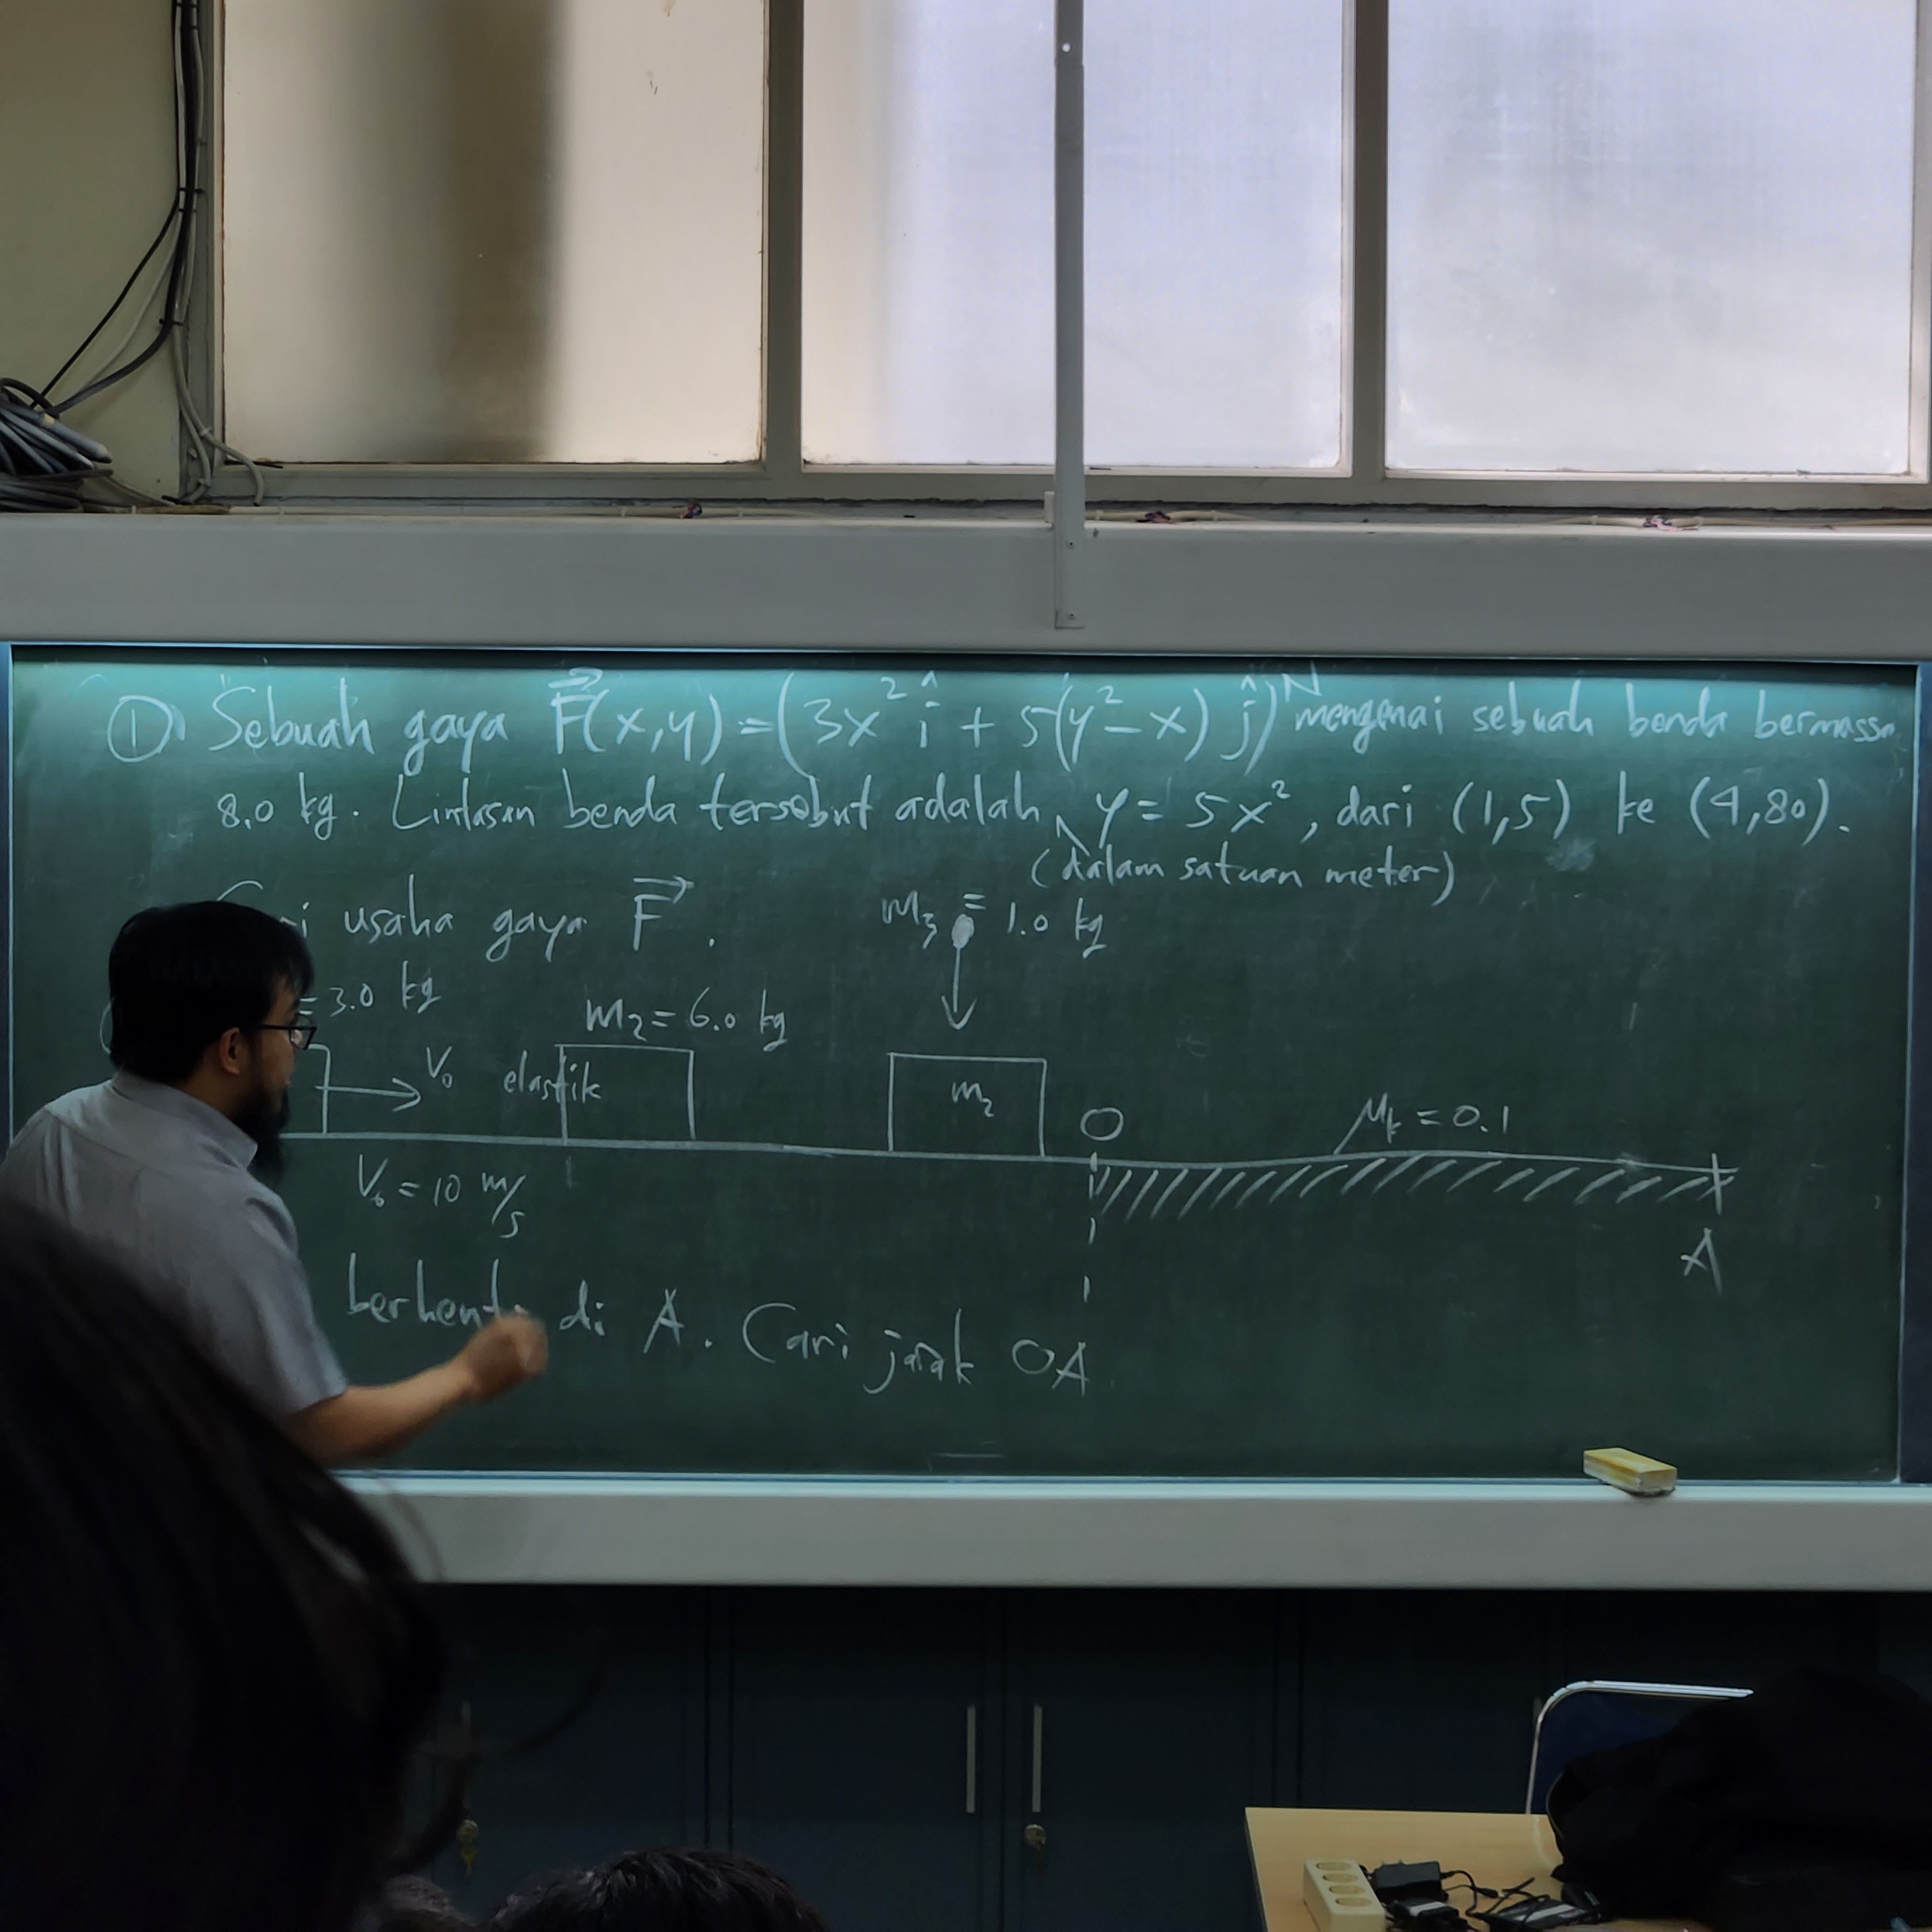 ① Sebuah gaya F⃗(x,y) = (3x² î + 5(y² - x) ĵ) N mengenai sebuah benda bermassa
8.0 kg. Lintasan benda tersebut adalah y = 5x², dari (1,5) ke (4,80).
(dalam satuan meter)
usaha gaya F⃗.
m₃ = 1.0 kg
= 3.0 kg
m₂ = 6.0 kg
V₀ elastik
m₂
O
μₖ = 0.1
V₀ = 10 m/s
A
berhenti di A. Cari jarak OA